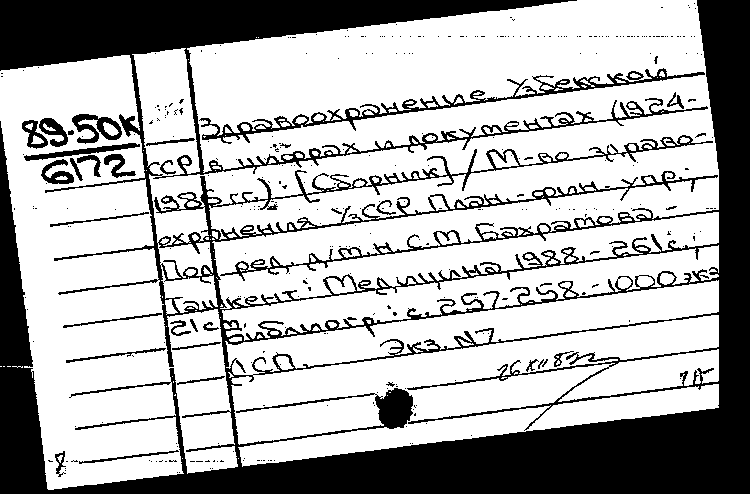 89-50к
6172
Здравоохранение Узбекской
ССР в цифрах и документах (1924-
1986 гг.): [Сборник] / М-во здраво-
охранения УзССР. План.-фин. упр.;
Под ред. д/м.н. С.М. Бахрамова.-
Ташкент: Медицина, 1988.- 261с.;
21 см.
Библиогр.: с. 257-258.- 1000 экз
ДСП. Экз. N7.
8